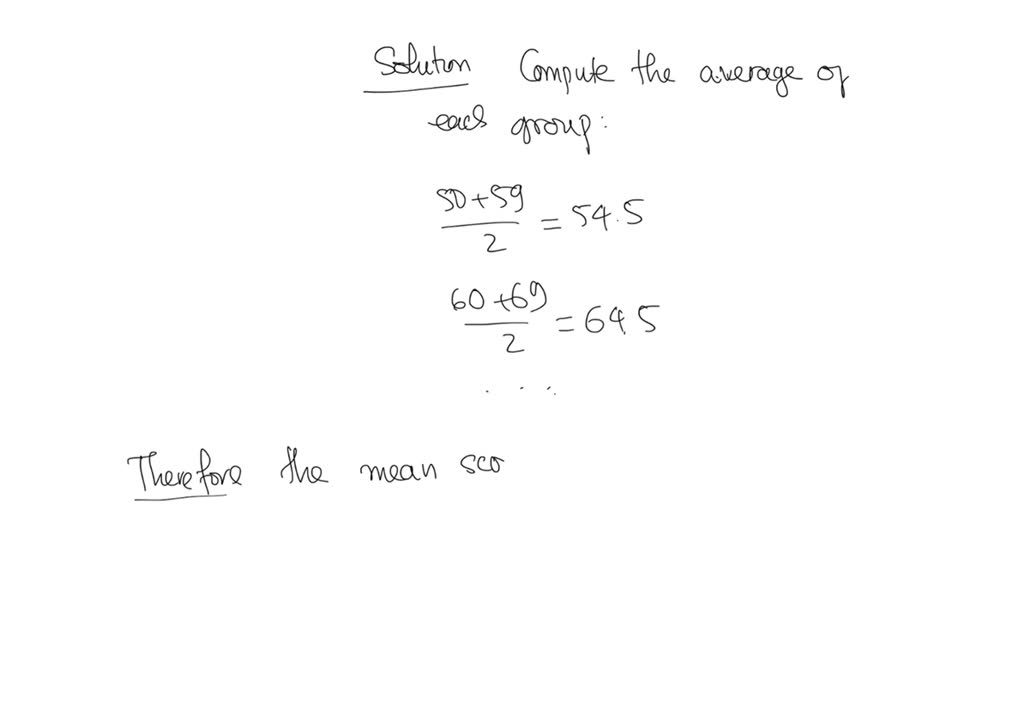 Solution Compute the average of
each group:
50+59
2
= 54.5
60+69
2
= 64.5
. . ..
Therefore the mean sco